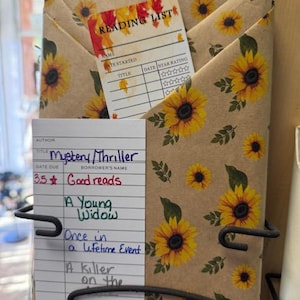 READING LIST
NAME
DATE STARTED
TITLE DATE YEAR RATING
AUTHOR
TITLE Mystery/Thriller
DATE DUE BORROWER'S NAME
3.5 Goodreads
A Young
Widow
Once in
a Lifetime Event
A Killer
on the